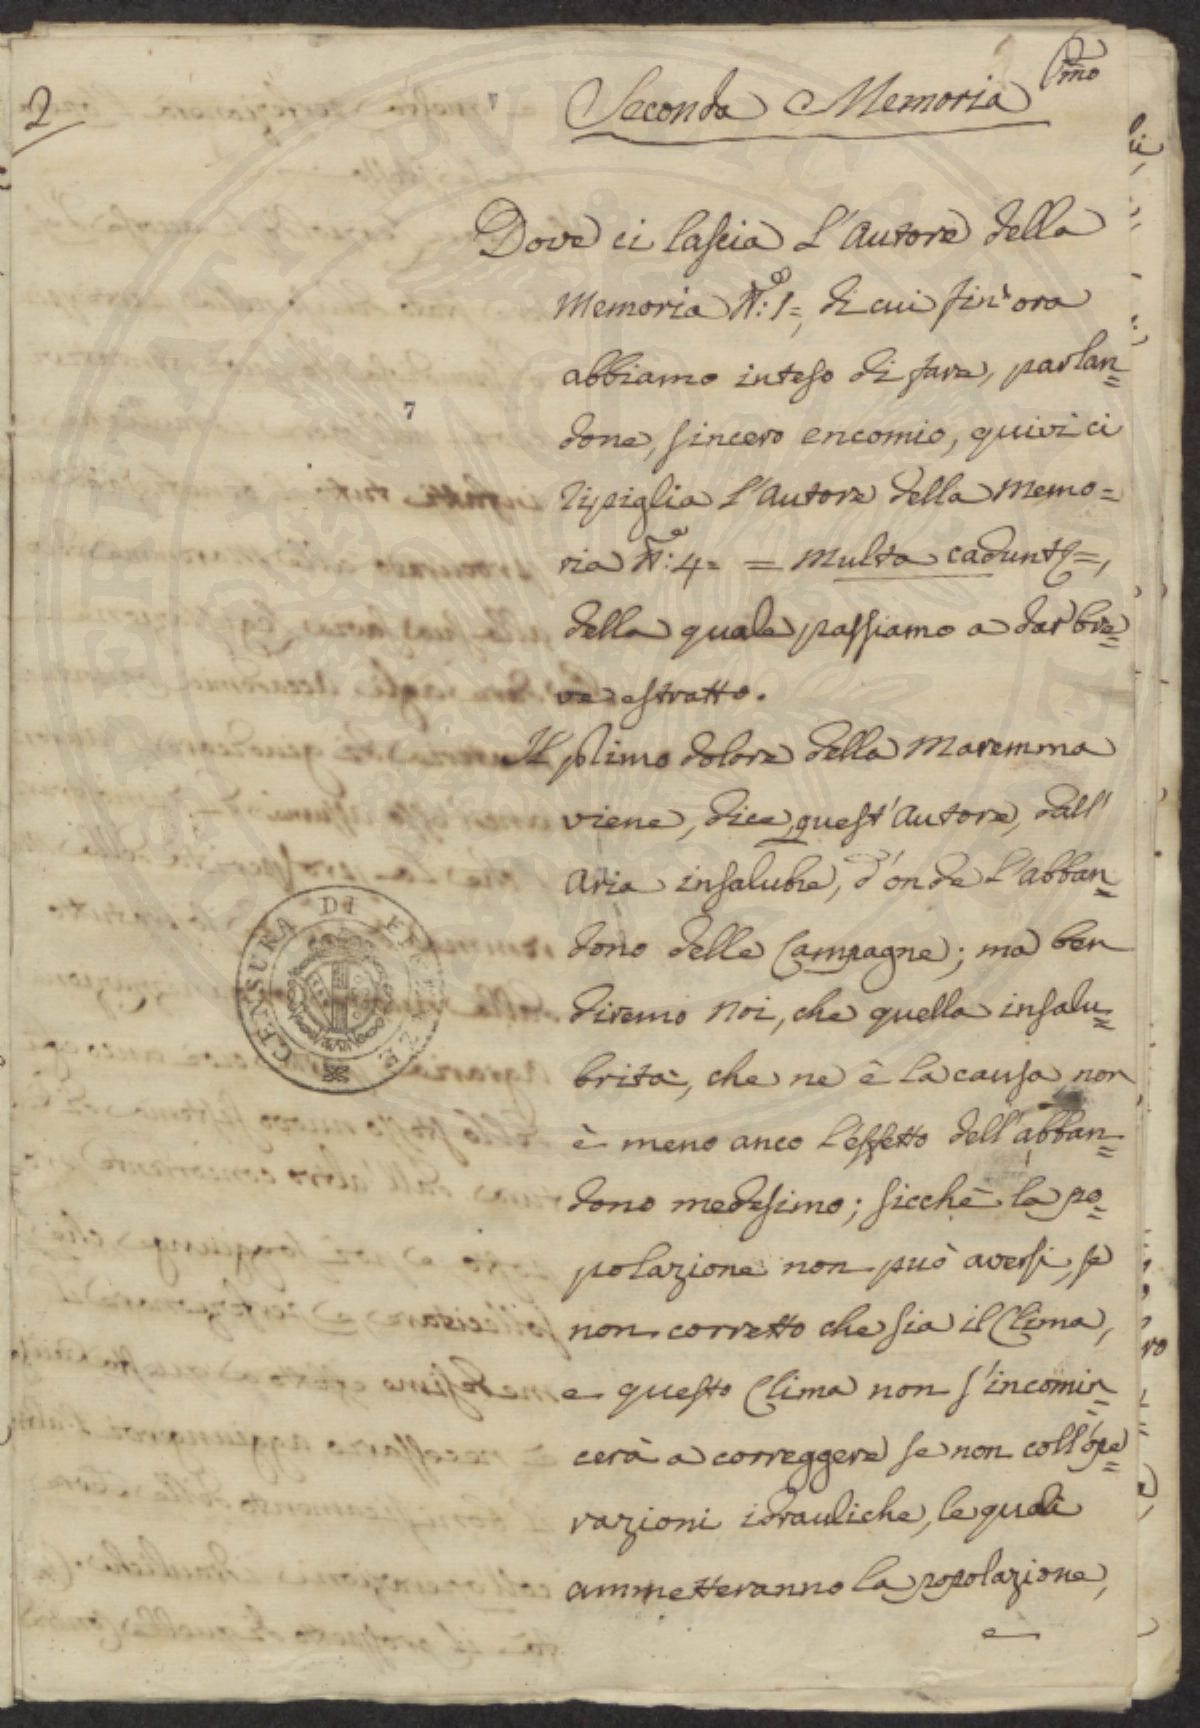 2
Seconda Memoria
Dove ci lascia l'Autore della
Memoria N.o: 1=, di cui fin'ora
abbiamo inteso di fare, parlan=
done, sincero encomio, quivi ci
ripiglia l'Autore della Memo=
ria N.o: 4= = Multa cadunt =,
della quale passiamo a dar bre=
ve estratto.
7
Il primo dolore della Maremma
viene, dice, quest'Autore, dall'
Aria insalubre, d'onde l'abban=
dono delle Campagne; ma ben
diremo Noi, che quella insalu=
brità, che ne è la causa non
è meno anco l'effetto dell'abban=
dono medesimo; sicchè la po=
polazione non può aversi, se
non corretto che sia il Clima,
e questo Clima non s'incomin=
cerà a correggere se non coll'ope=
razioni idrauliche, le quali
ammetteranno la popolazione,
e
CENSURA DI FIRENZE